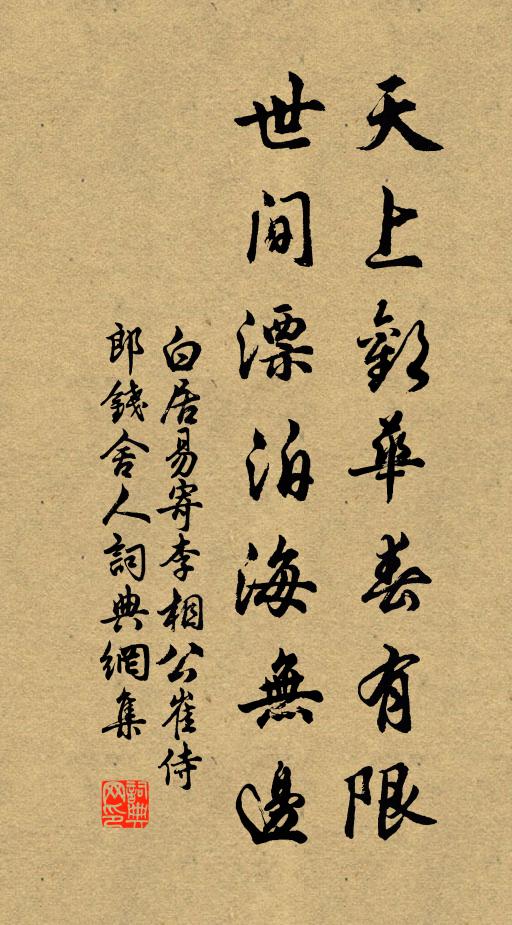 天上歡華春有限
世間漂泊海無邊
白居易寄李相公崔侍
郎錢舍人詞典網集
詞典网印